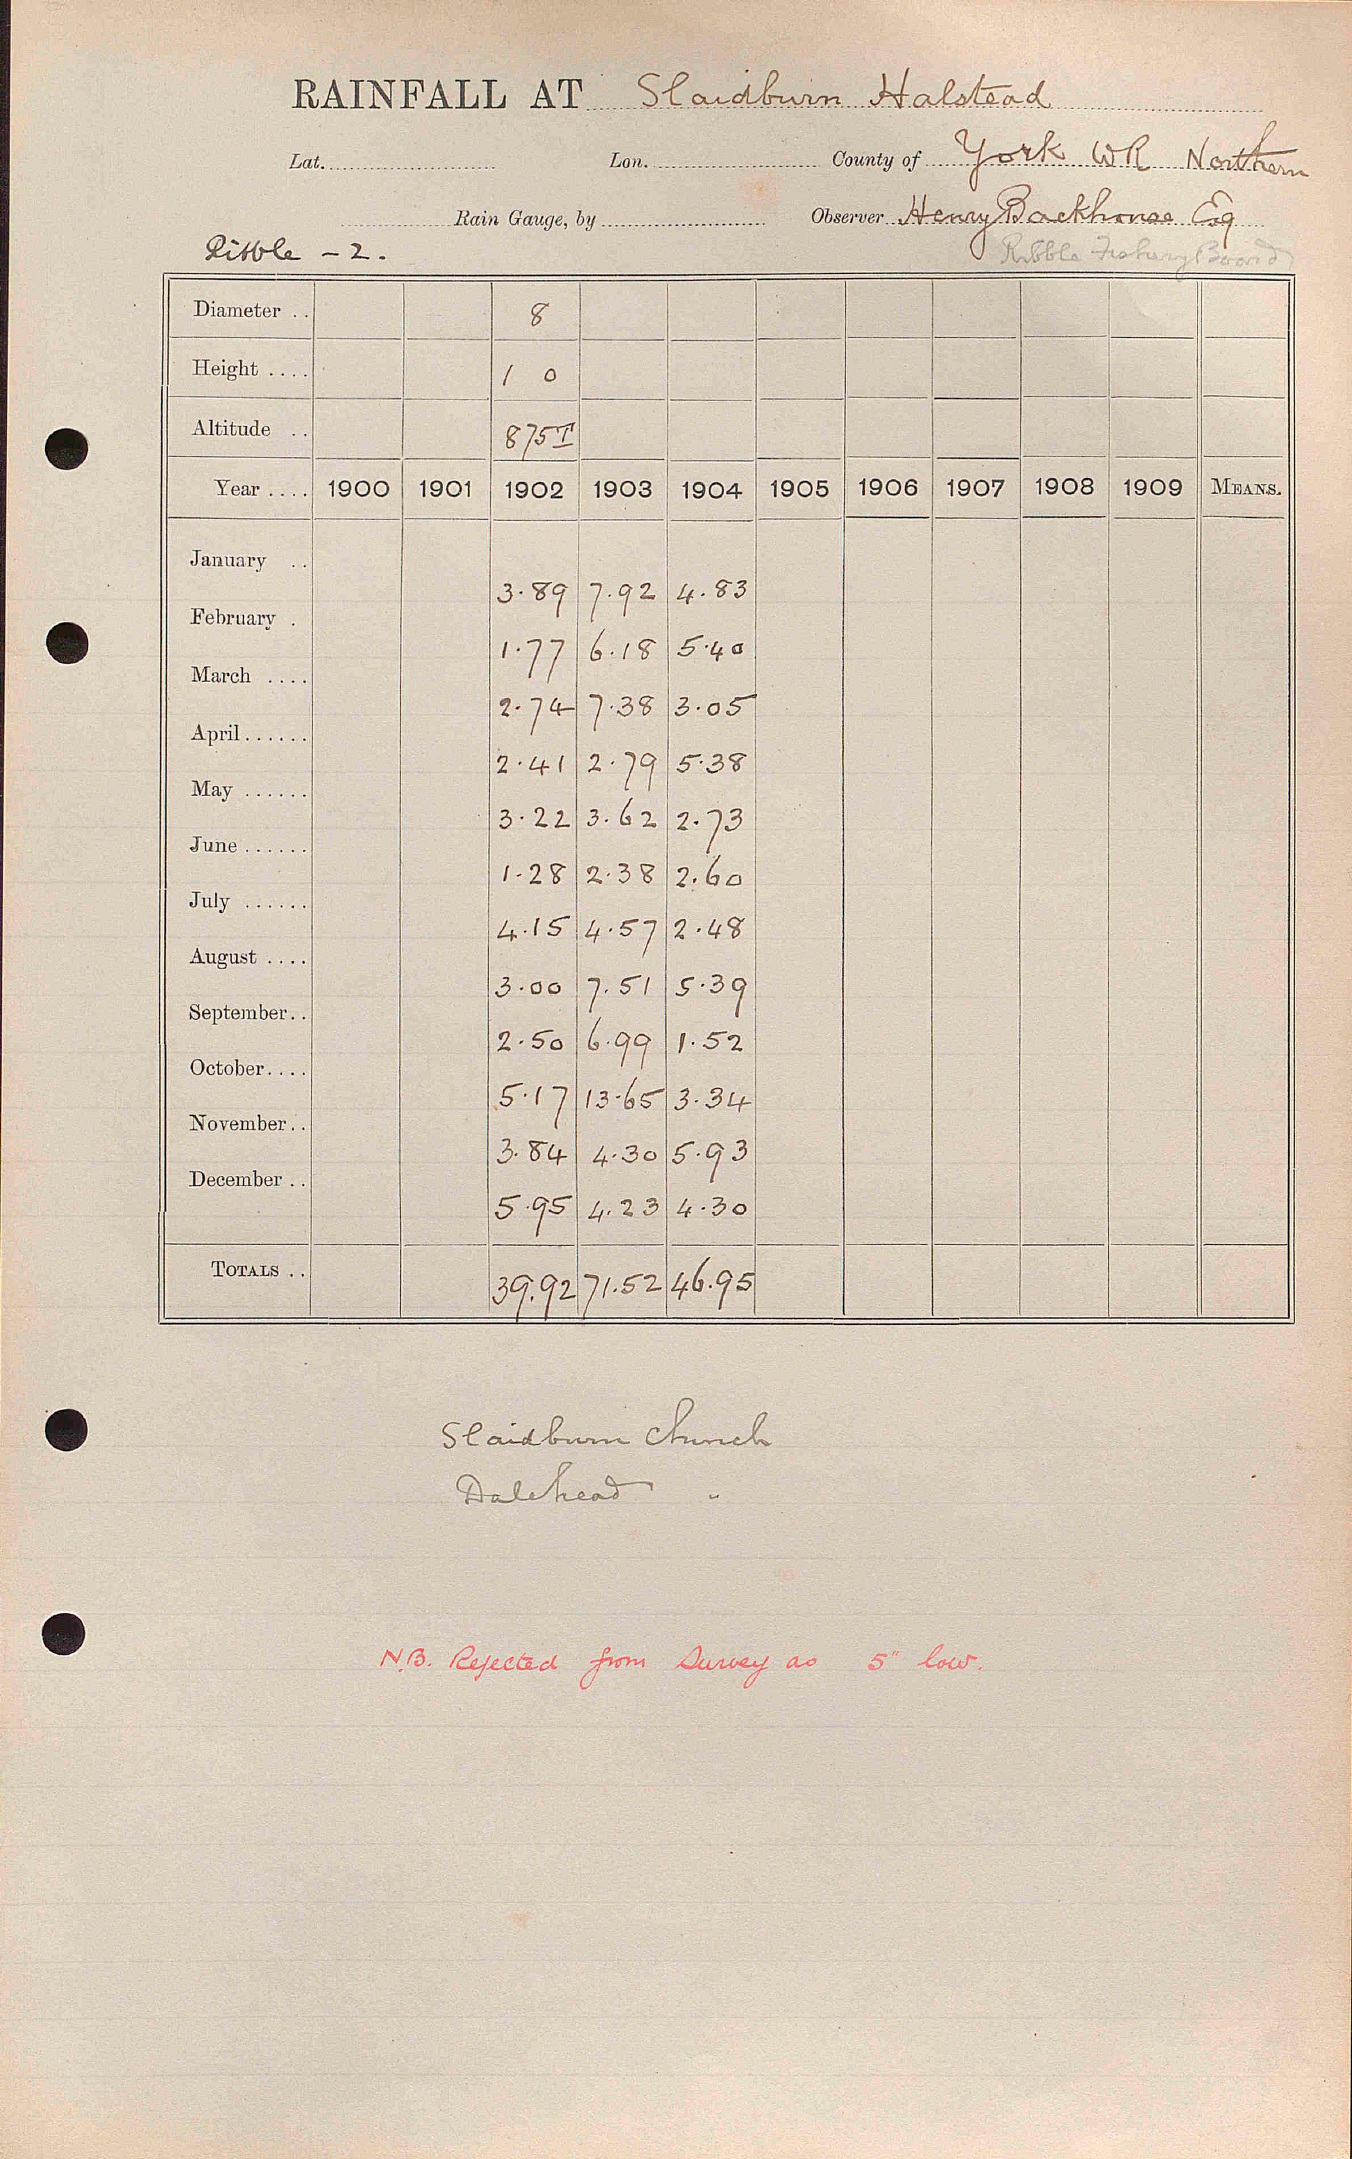 RAINFALL AT Slaidburn Halstead
Lat. Lon. County of York WR Northern
Rain Gauge, by Observer Henry Backhouse Esq
Ribble - 2. Ribble Fishery Board
Diameter .. 8
Height .... 1 0
Altitude .. 875T
Year .... 1900 1901 1902 1903 1904 1905 1906 1907 1908 1909 MEANS.
January .. 3.89 7.92 4.83
February . 1.77 6.18 5.40
March .... 2.74 7.38 3.05
April...... 2.41 2.79 5.38
May ...... 3.22 3.62 2.73
June ...... 1.28 2.38 2.60
July ...... 4.15 4.57 2.48
August .... 3.00 7.51 5.39
September.. 2.50 6.99 1.52
October.... 5.17 13.65 3.34
November.. 3.84 4.30 5.93
December .. 5.95 4.23 4.30
TOTALS .. 39.92 71.52 46.95
Slaidburn Church
Dalehead "
N.B. Rejected from Survey as 5" low.